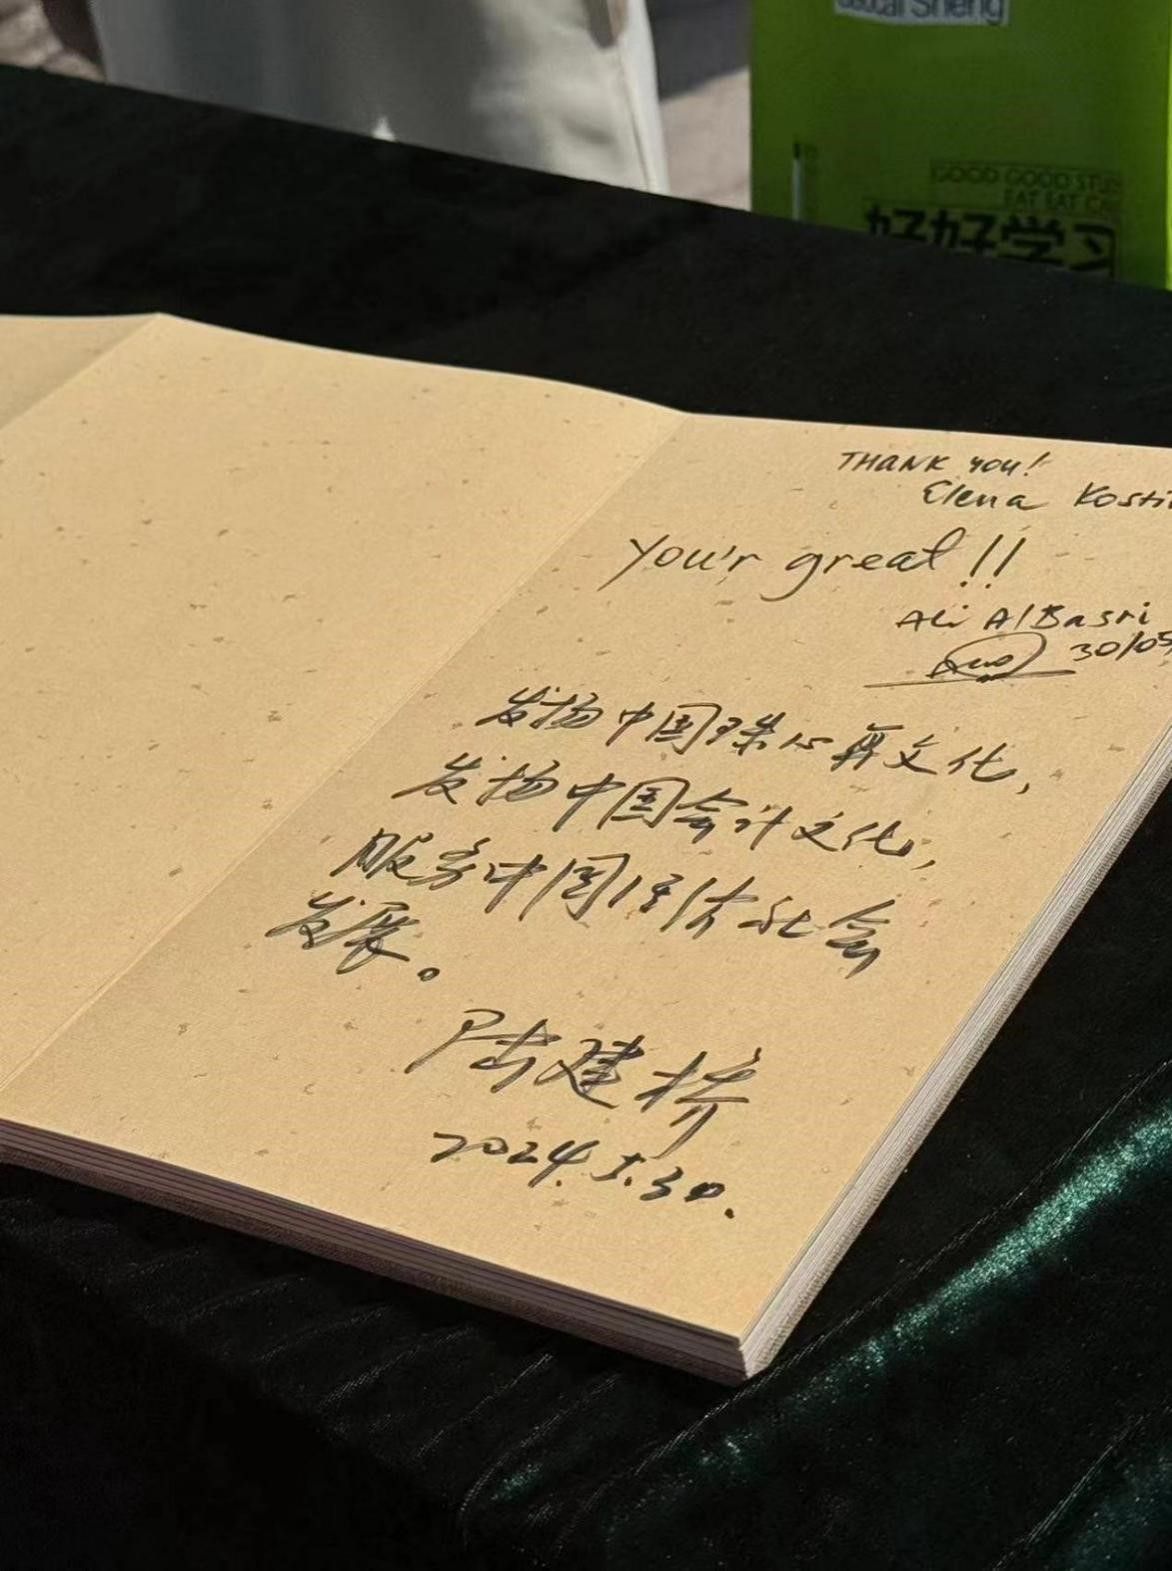 Sheng
GOOD GOOD STU
EAT EAT CA
好好学习
THANK YOU!
Elena Kosti
You'r great!!
Ali AlBasri
30/05
发扬中国珠心算文化，
发扬中国会计文化，
服务中国经济社会
发展。
陆建桥
2024.5.30.